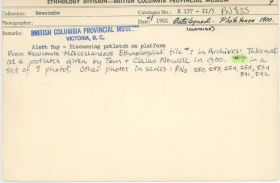 ETHNOLOGY DIVISION—BRITISH COLUMBIA PROVINCIAL MUSEUM
Collection Newcombe Catalogue No.: E 137 - II/3 PN 835
Photographer Date: 1902
Remarks: BRITISH COLUMBIA PROVINCIAL MUSE
VICTORIA, B. C.
Alert Bay - Discussing potlatch on platform
From Newcombe 'Miscellaneous Ethnological' file #7 in Archives. Taken at
at a potlatch given by Tom + Chas Nowell in 1900. in a
set of 8 photos. Other photos in series: PNs 280, 253, 254, 255, 834
841, 842